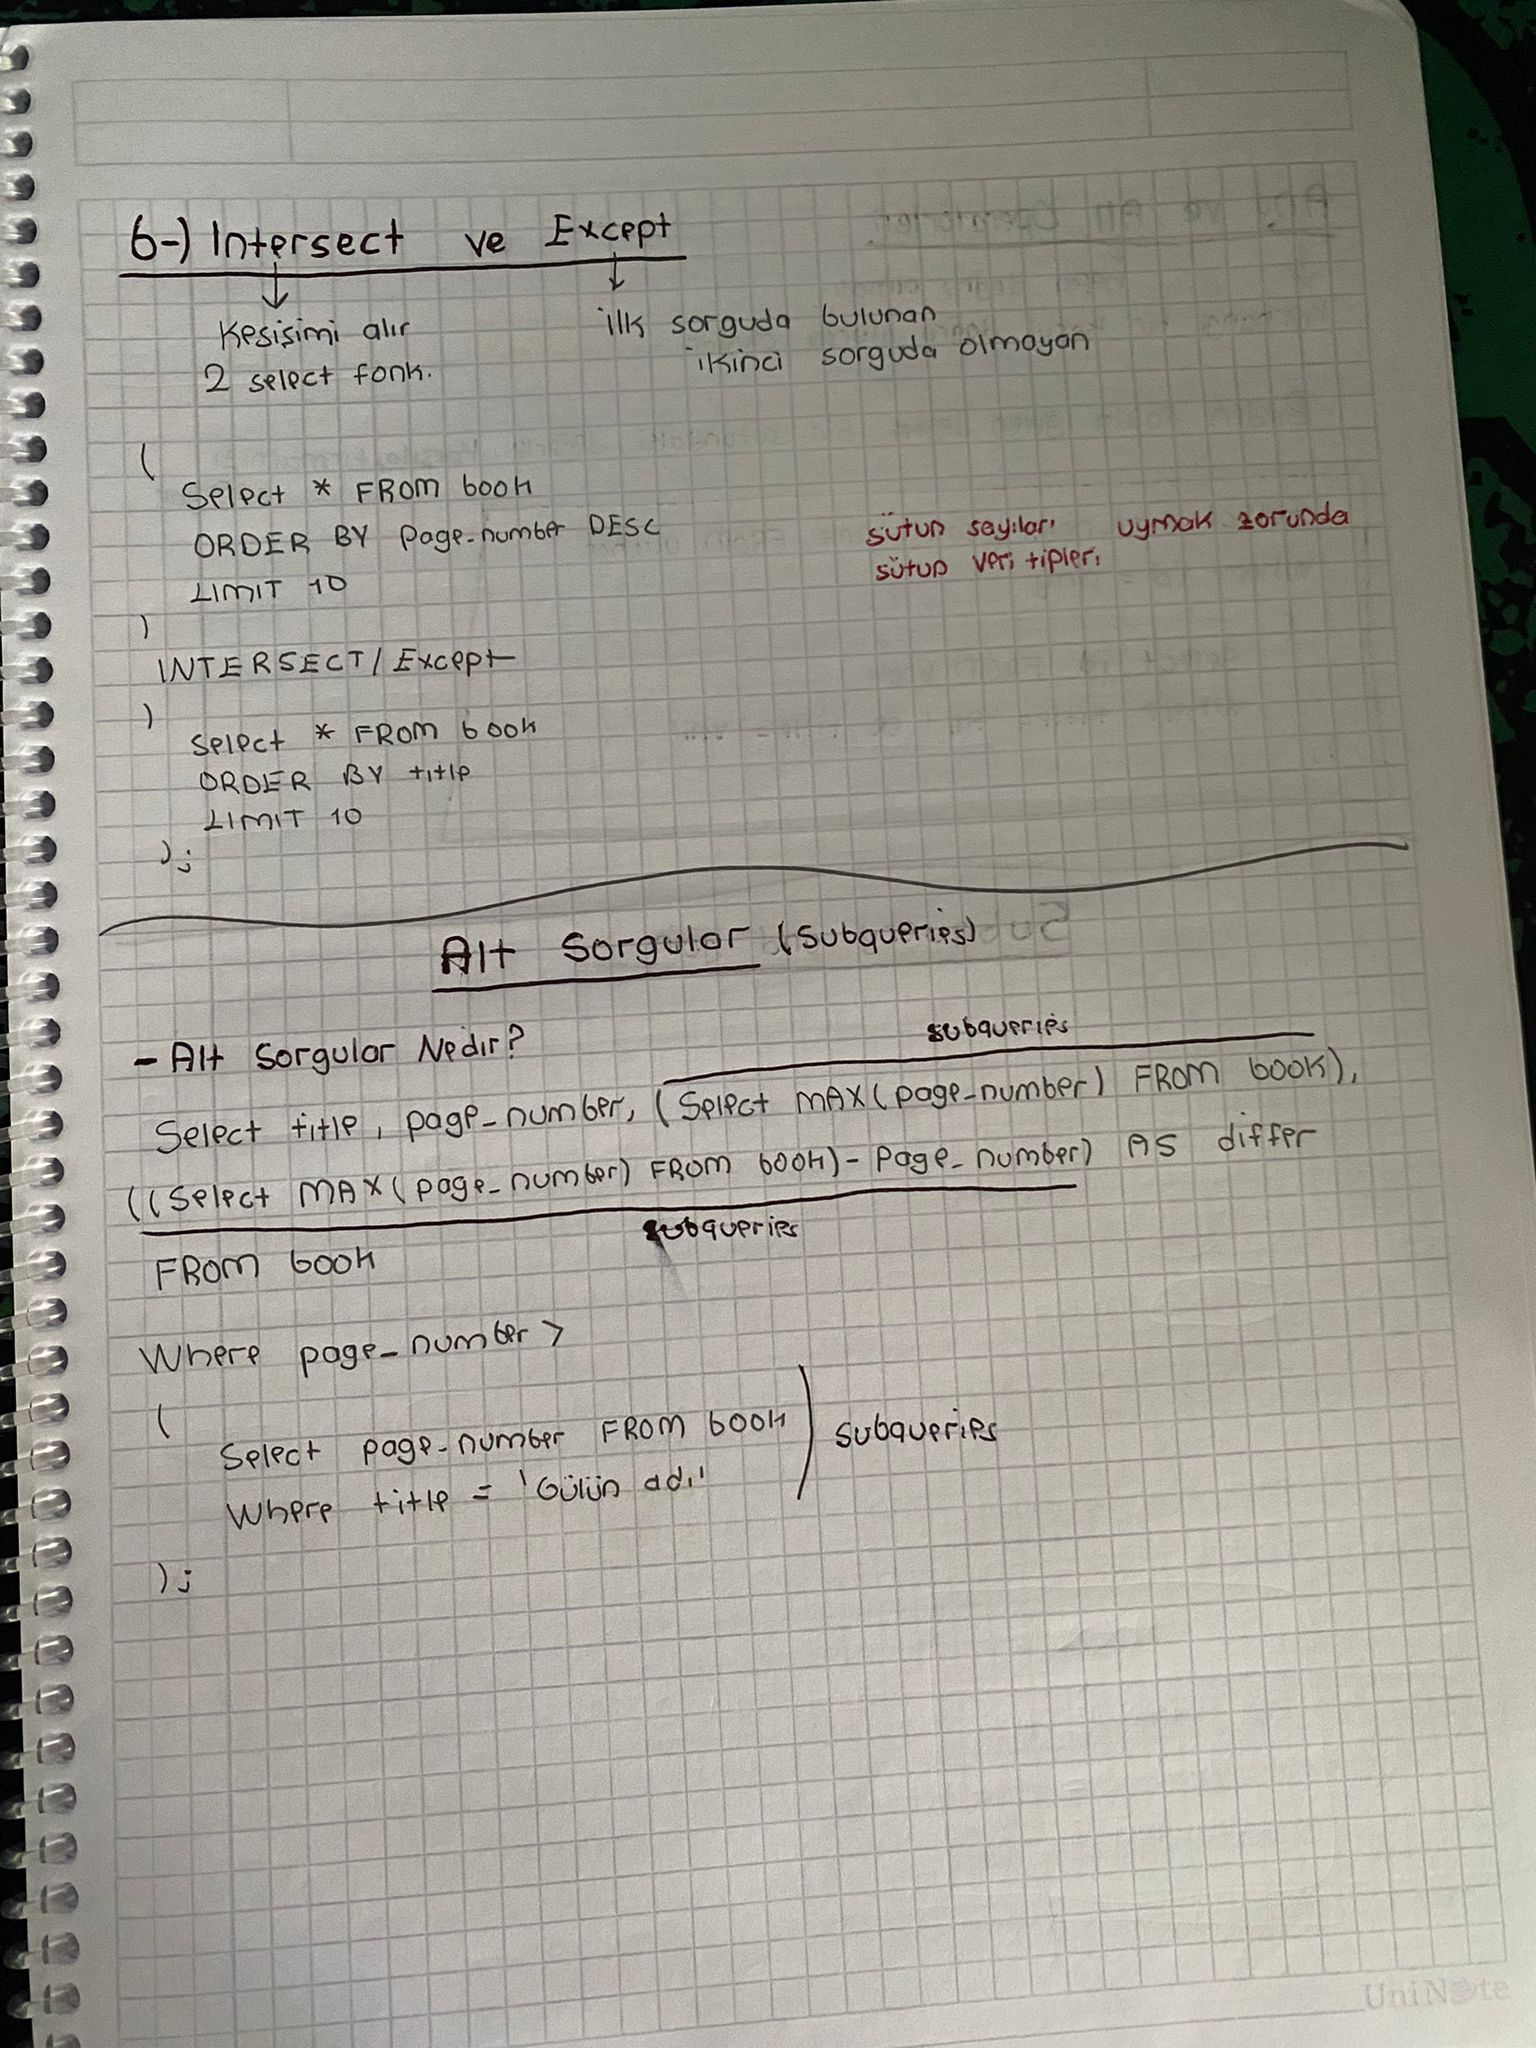 6-) Intersect ve Except
Kesişimi alır
2 select fonk.
ilk sorguda bulunan
ikinci sorguda olmayan
(
Select * FROM book
ORDER BY page_number DESC
LIMIT 10
)
sütun sayıları uymak zorunda
sütun veri tipleri
INTERSECT / Except
)
Select * FROM book
ORDER BY title
LIMIT 10
);
Alt Sorgular (Subqueries)
- Alt Sorgular Nedir?
subqueries
Select title, page_number, (Select MAX(page_number) FROM book),
((Select MAX(page_number) FROM book) - page_number) AS differ
subqueries
FROM book
Where page_number >
(
Select page_number FROM book
Where title = 'Gülün adı'
subqueries
);
UniNote